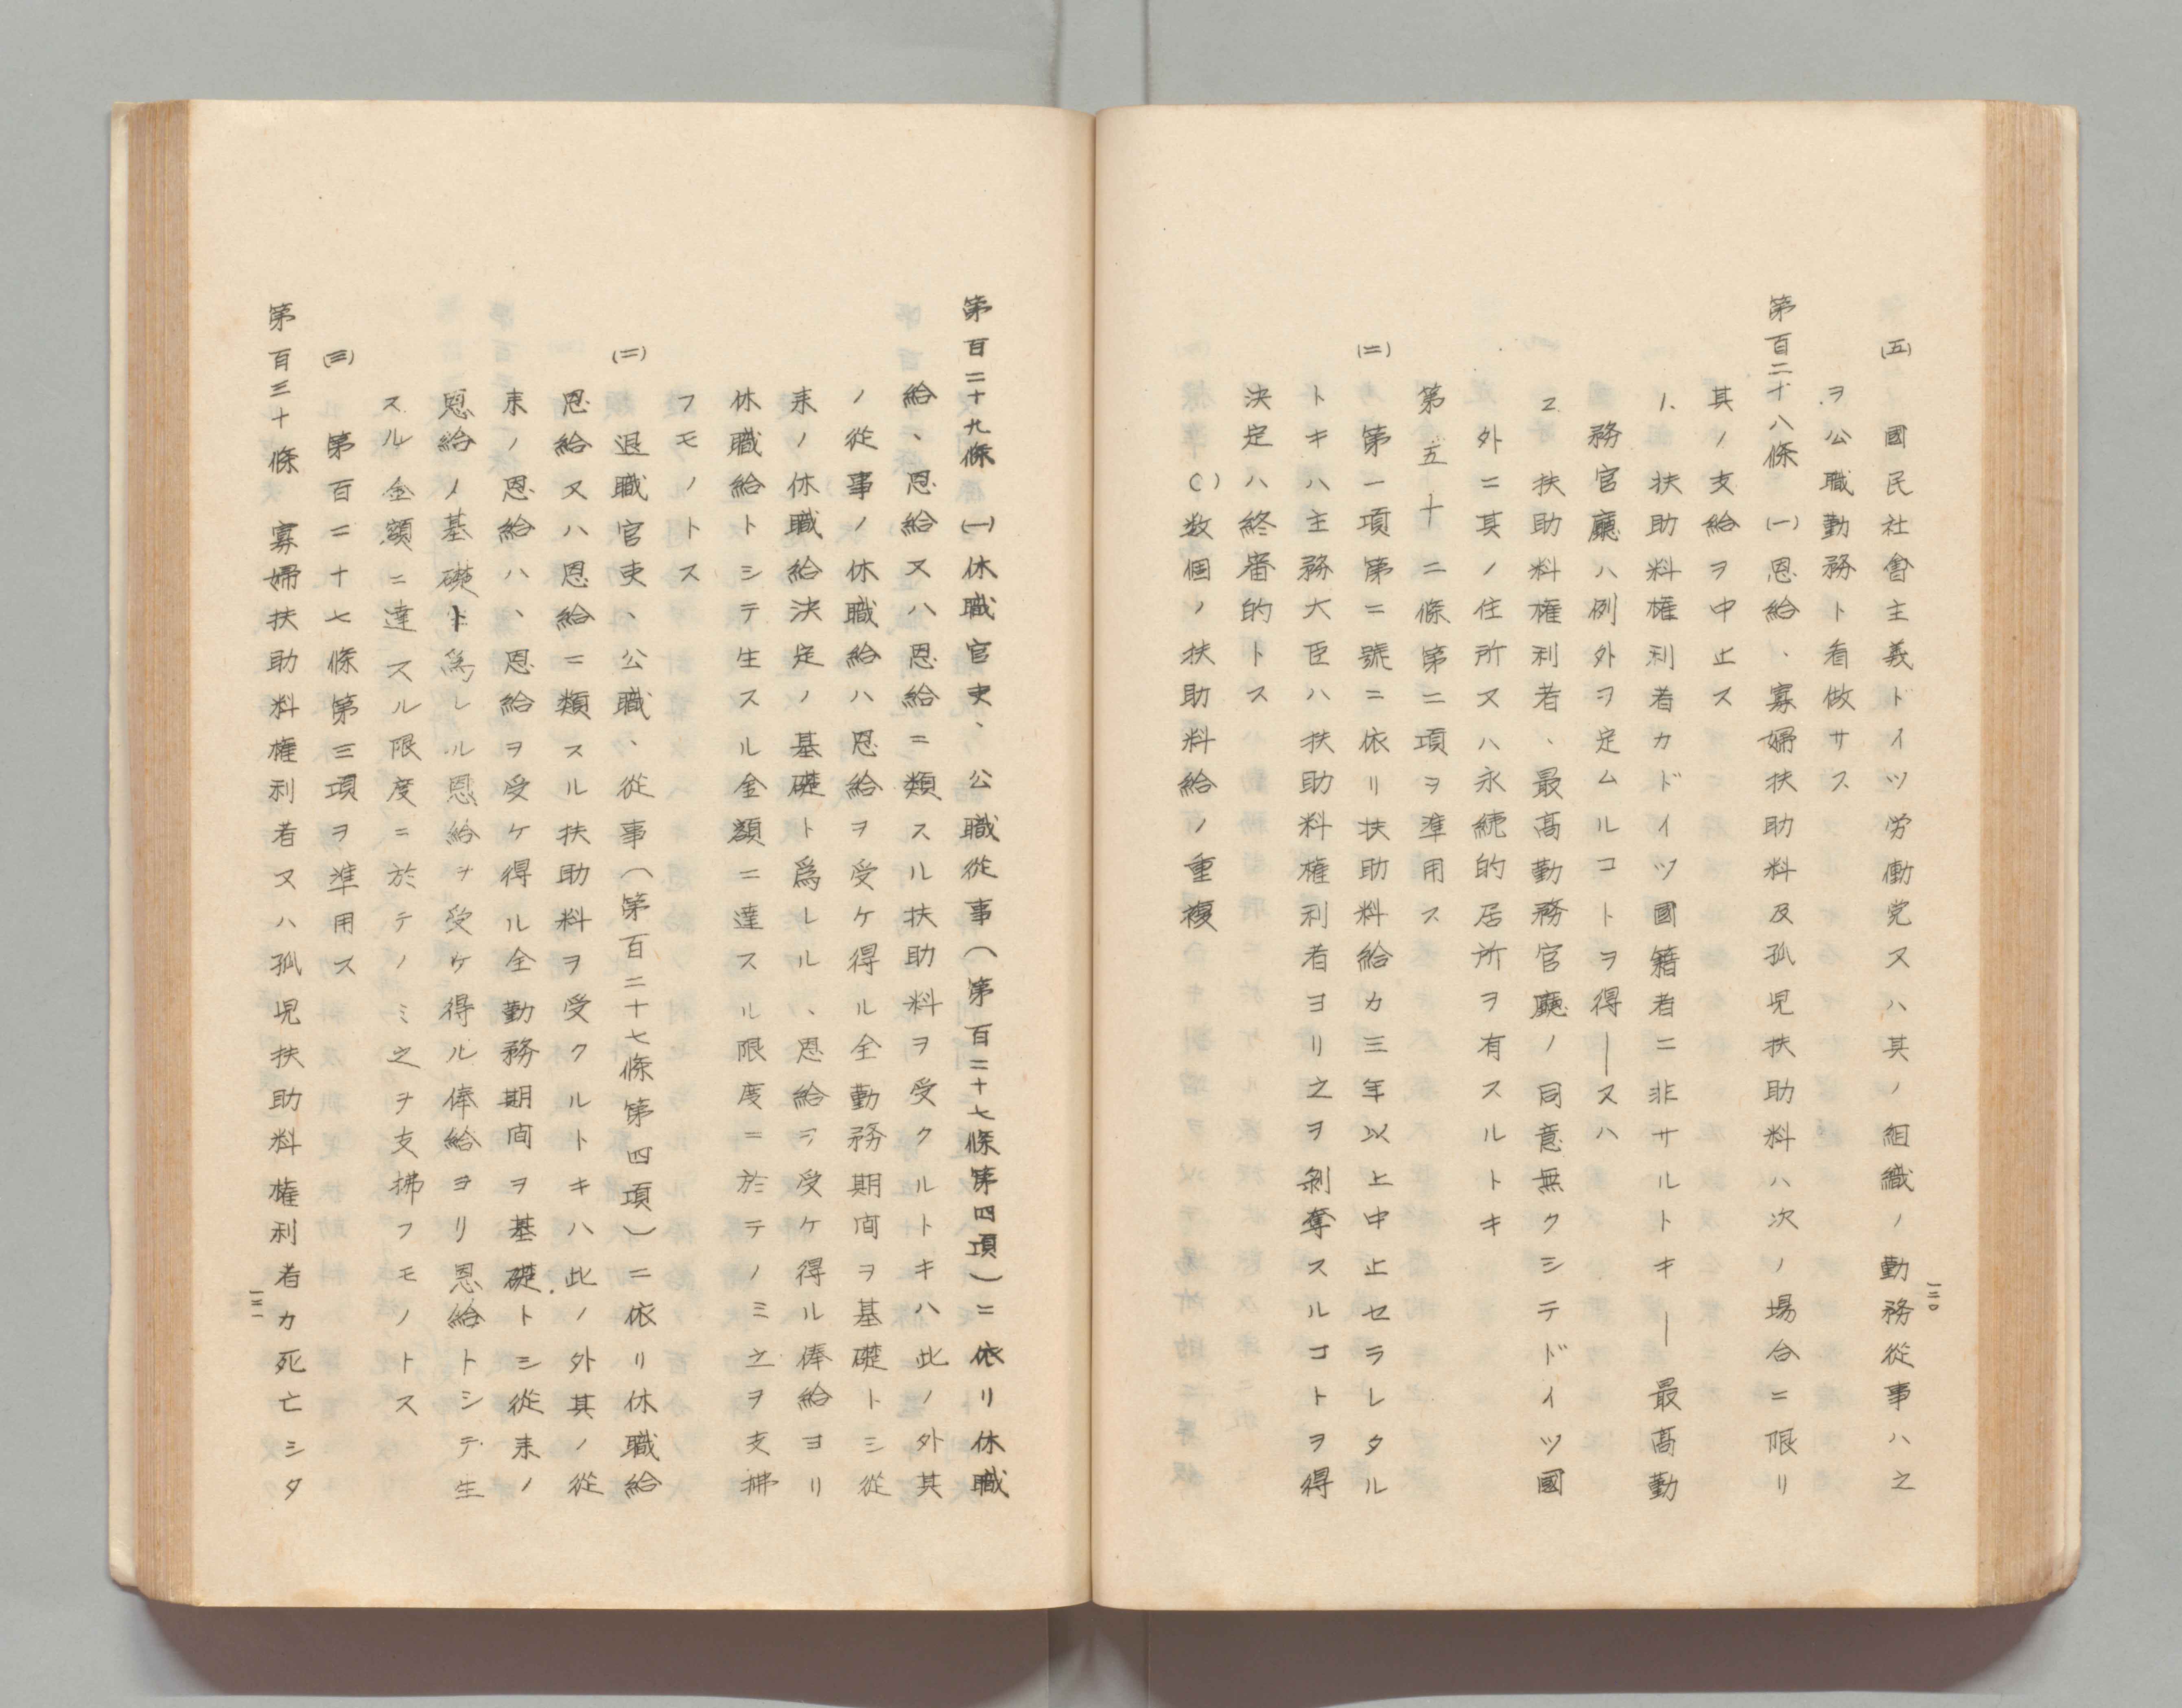 (五)　國民社會主義ドイツ労働党又ハ其ノ組織ノ勤務従事ハ之
ヲ公職勤務ト看做サス
第百二十八條　(一)恩給、寡婦扶助料及孤児扶助料ハ次ノ場合ニ限リ
其ノ支給ヲ中止ス
1、扶助料権利者カドイツ國籍者ニ非サルトキ―最高勤
務官廳ハ例外ヲ定ムルコトヲ得―又ハ
2　扶助料権利者、最高勤務官廳ノ同意無クシテドイツ國
外ニ其ノ住所又ハ永続的居所ヲ有スルトキ
第五十二條第二項ヲ準用ス
(二)　第一項第二號ニ依リ扶助料給カ三年以上中止セラレタル
トキハ主務大臣ハ扶助料権利者ヨリ之ヲ剝奪スルコトヲ得
決定ハ終審的トス
C)数個ノ扶助料給ノ重複
一三〇
第百二十九條(一)休職官吏、公職從事(第百二十七條第四項)ニ依リ休職
給、恩給又ハ恩給ニ類スル扶助料ヲ受クルトキハ此ノ外其
ノ従事ノ休職給ハ恩給ヲ受ケ得ル全勤務期间ヲ基礎トシ従
来ノ休職給決定ノ基礎ト爲レル、恩給ヲ受ケ得ル俸給ヨリ
休職給トシテ生スル金額ニ達スル限度ニ於テノミ之ヲ支拂
フモノトス
(二)　退職官吏、公職、従事(第百二十七條第四項)ニ依リ休職給
恩給又ハ恩給ニ類スル扶助料ヲ受クルトキハ此ノ外其ノ從
来ノ恩給ハ、恩給ヲ受ケ得ル全勤務期间ヲ基礎トシ從来ノ
恩給ノ基礎ト爲レル恩給ヲ受ケ得ル俸給ヨリ恩給トシテ生
スル金額ニ達スル限度ニ於テノミ之ヲ支拂フモノトス
(三)　第百二十七條第三項ヲ準用ス
第百三十條　寡婦扶助料権利者又ハ孤児扶助料権利者カ死亡シタ
一三一